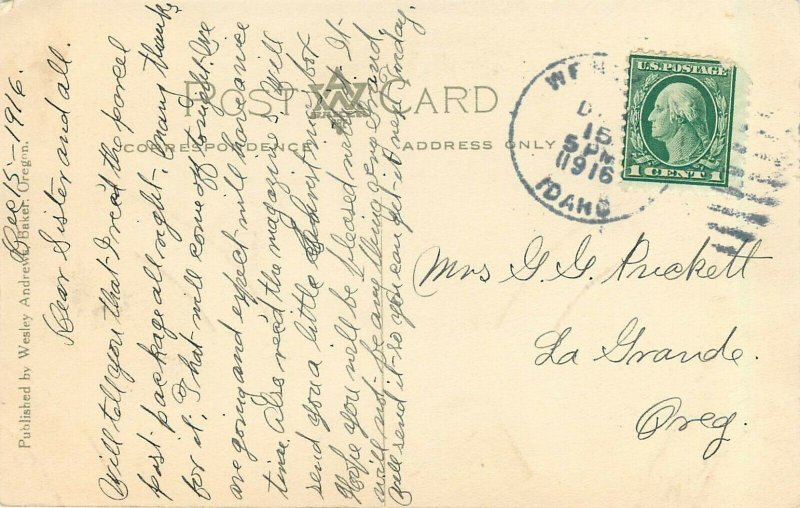 POST CARD
CORRESPONDENCE
ADDRESS ONLY
Published by Wesley Andrews, Baker, Oregon.
Dec 15-1916.
Dear Sister and all.
Will tell you that I rec'd the parcel
post package all right. Many thanks
for it. That will come off tonight. We
are going and expect will have a nice
time. Also rec'd the magazines. Will
send you a little Xmas but
Hope you will be pleased with it. It
will not be any thing very grand
will send it so you can get it next Friday.
Mrs G. G. Puckett
La Grande.
Oreg.
15
5 PM
1916
IDAHO
U.S. POSTAGE
1 CENT 1